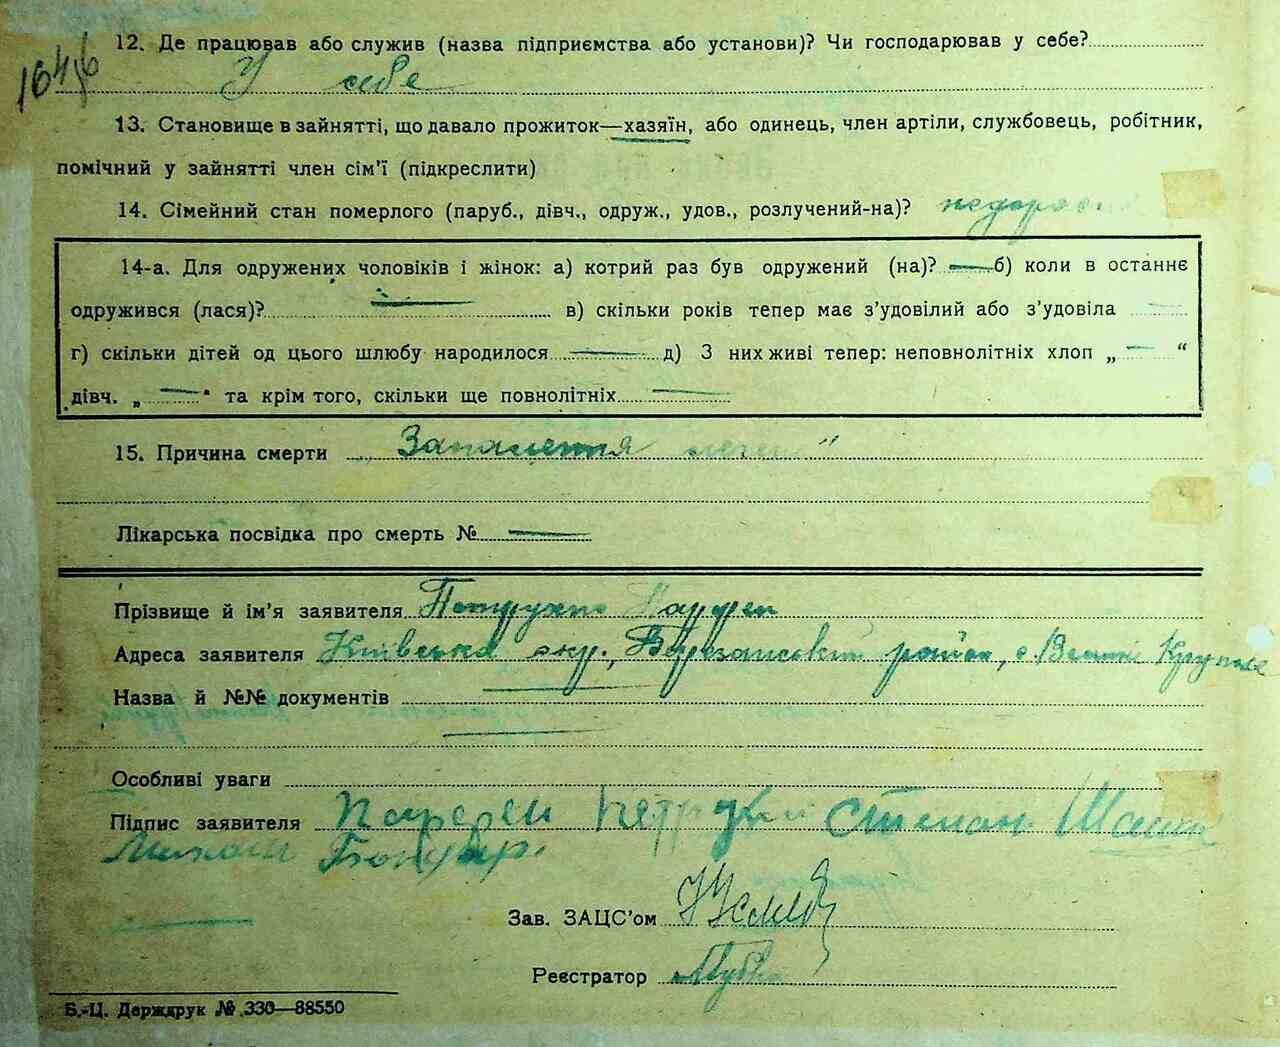 12. Де працював або служив (назва підприємства або установи)? Чи господарював у себе?
У себе
13. Становище в зайнятті, що давало прожиток—хазяїн, або одинець, член артіли, службовець, робітник,
помічний у зайнятті член сім'ї (підкреслити)
14. Сімейний стан померлого (паруб., дівч., одруж., удов., розлучений-на)?
14-а. Для одружених чоловіків і жінок: а) котрий раз був одружений (на)? — б) коли в останнє
одружився (лася)? — в) скільки років тепер має з'удовілий або з'удовіла —
г) скільки дітей од цього шлюбу народилося — д) З них живі тепер: неповнолітніх хлоп „ — “
дівч. „ — “ та крім того, скільки ще повнолітніх —
15. Причина смерти „Запалення легенів“
Лікарська посвідка про смерть № —
Прізвище й ім'я заявителя Петрухно Парфен
Адреса заявителя Київська окр., Березанський район, с Великі Крупол
Назва й №№ документів —
Особливі уваги
Підпис заявителя Парфен Степан
Бондар.
Зав. ЗАЦС'ом
Реєстратор
Б.-Ц. Держдрук № 330—88550